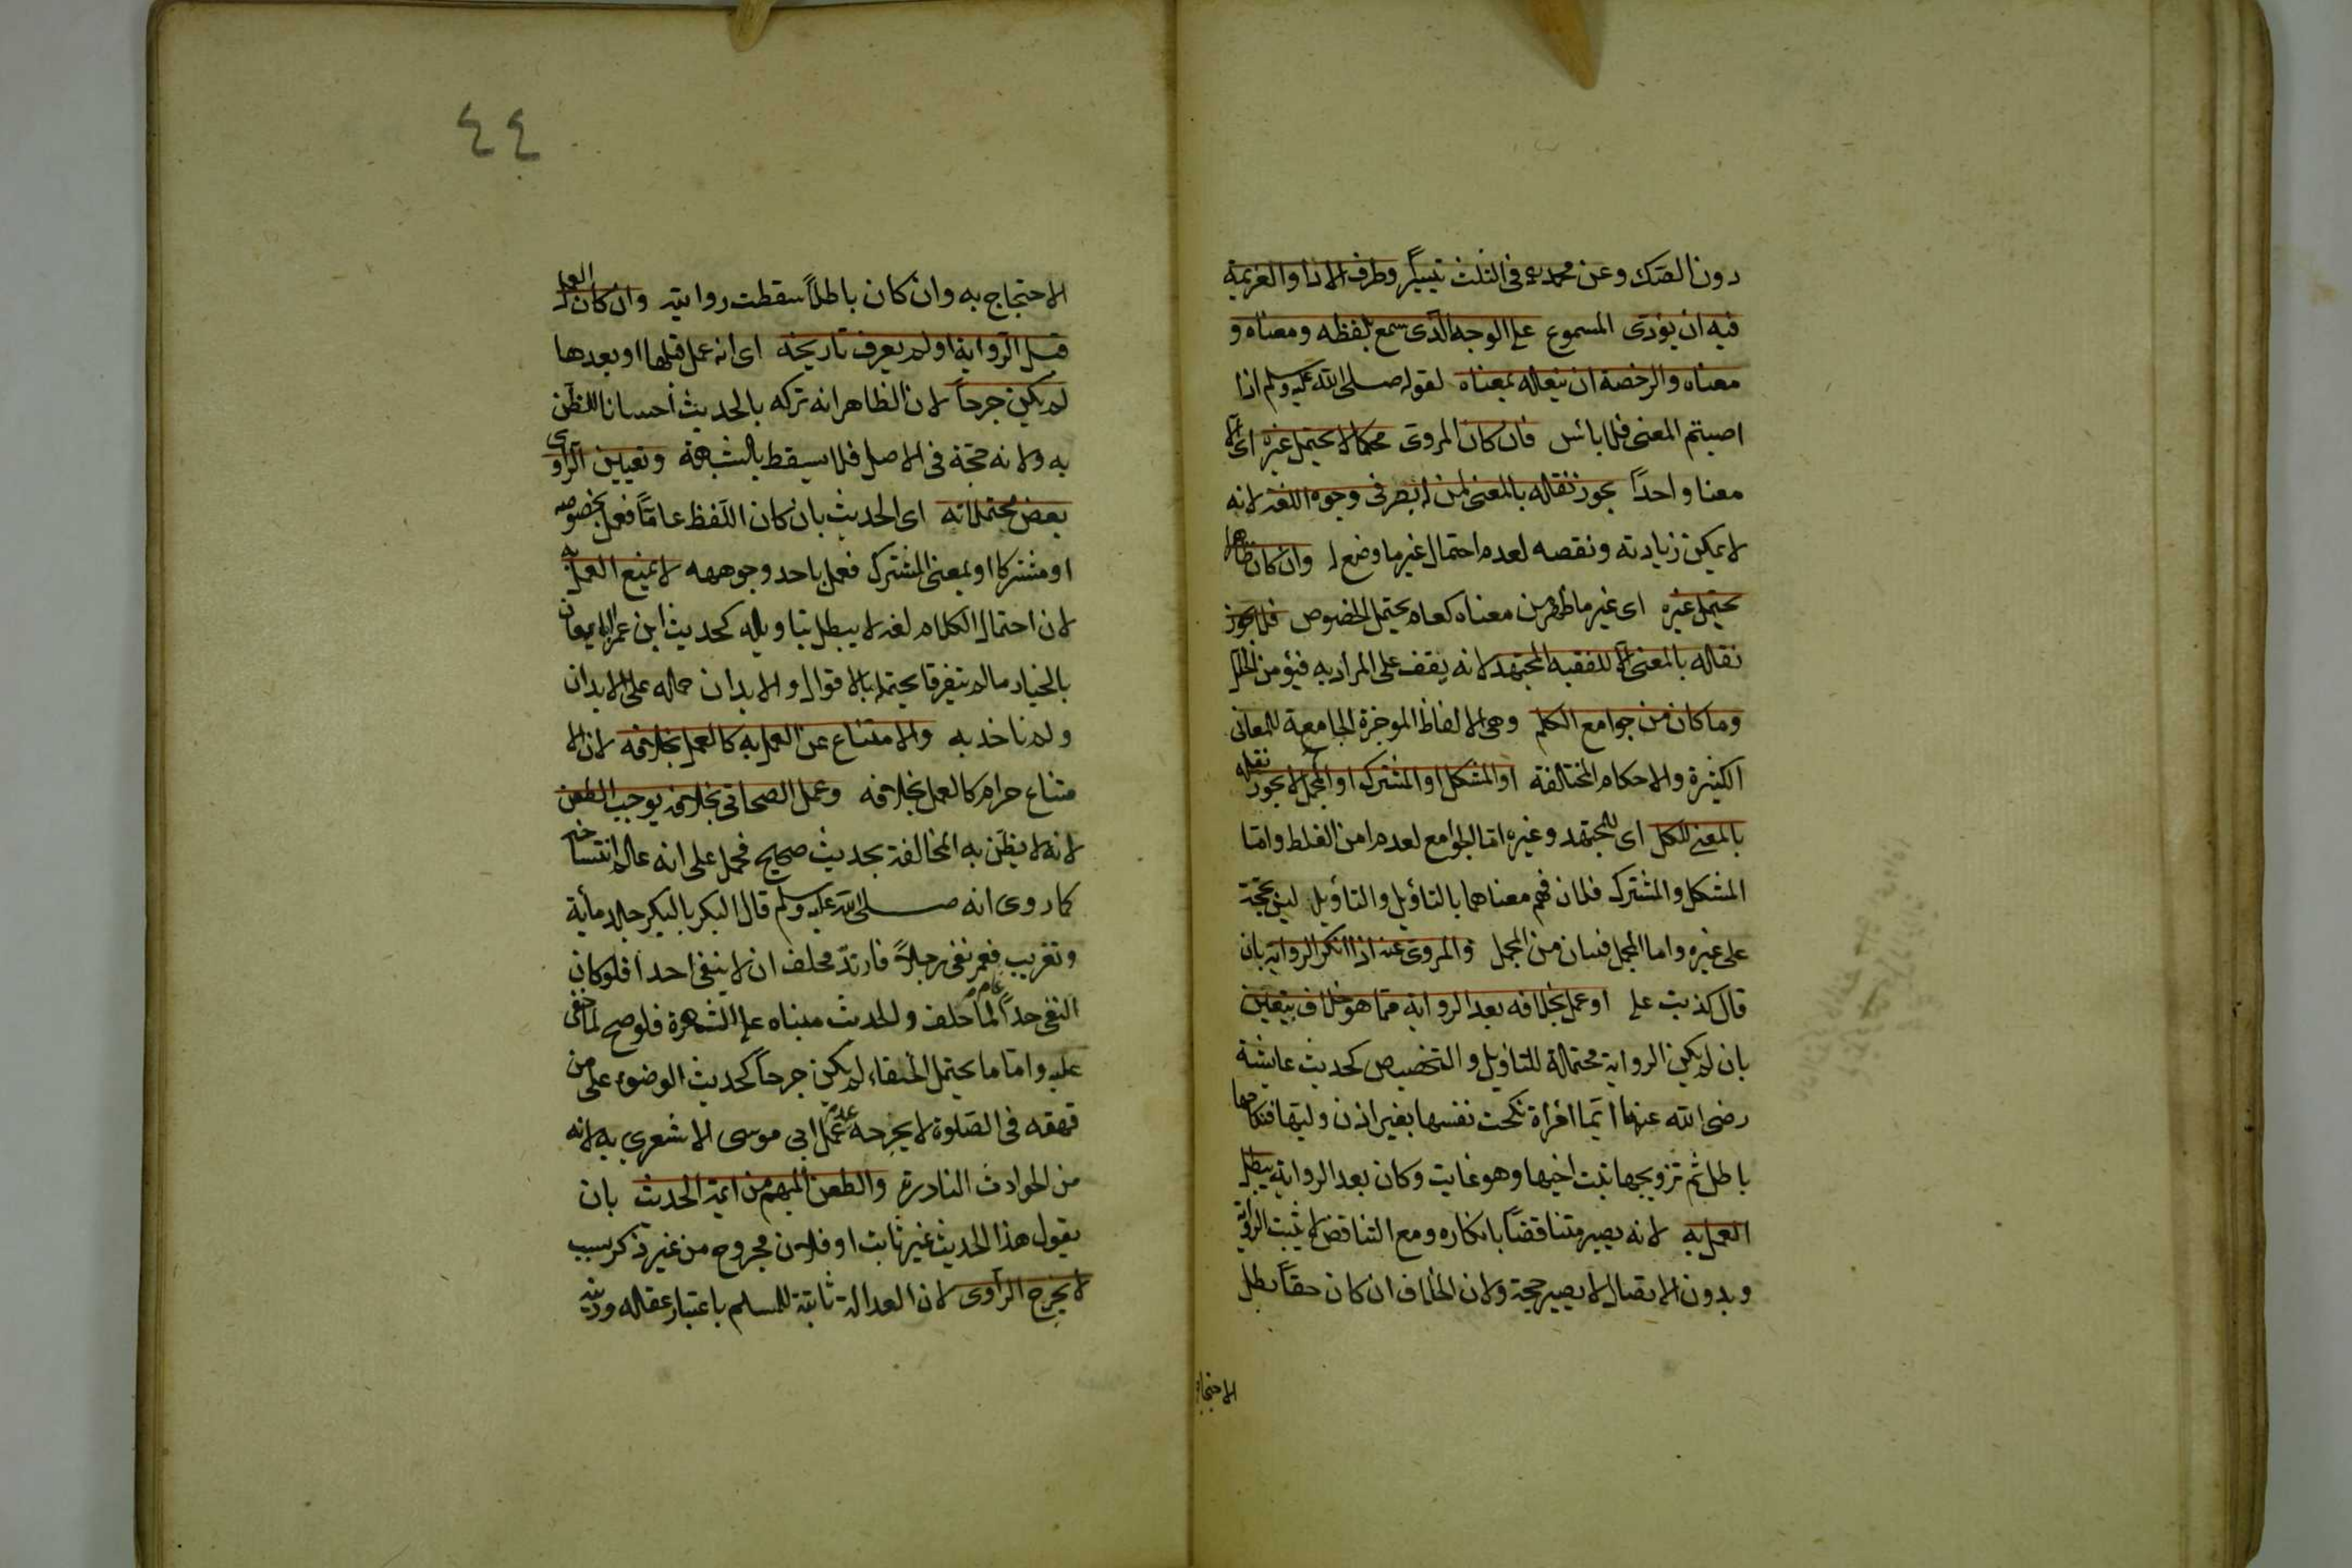 دون الصك وعن محمد رح فى الثلث تيسيرًا وطرف الاداء والعزيمة
فيه ان يؤدى المسموع على الوجه الذى سمع بلفظه ومعناه و
معناه والرخصة ان ينقله بمعناه لقوله صلى الله عليه وسلم اذا
اصبتم المعنى فلا بائس فان كان المروى محكما لا يحتمل غيره اى الا
معنا واحدًا يجوز نقله بالمعنى لمن له بصر فى وجوه اللغة لانه
لا يمكن زيادته ونقصه لعدم احتمال غير ما وضع له وان كان ظاهرا
يحتمل غيره اى غير ما ظهر من معناه كعام يحتمل الخصوص فلا يجوز
نقله بالمعنى الا للفقيه المجتهد لانه يقف على المراد به فيؤمن الخلل
وما كان من جوامع الكلم وهى الالفاظ الموجزة الجامعة للمعانى
الكثيرة والاحكام المختلفة او المشكل او المشترك او المجمل لا يجوز نقله
بالمعنى للكل اى للمجتهد وغيره اما الجوامع لعدم امن الغلط واما
المشكل والمشترك فلان فهم معناهما بالتأويل والتأويل ليس بحجة
على غيره واما المجمل فبيان من المجمل والمروى عنه اذا انكر الرواية بان
قال كذبت على او عمل بخلافه بعد الرواية مما هو خلاف بيقين
بان لم يكن الرواية محتملة للتاويل والتخصيص كحديث عايشة
رضى الله عنها ايما امرأة نكحت نفسها بغير اذن وليها فنكاحها
باطل ثم تزويجها بنت اخيها وهو غايب وكان بعد الرواية يبطل
العمل به لانه يصير متناقضًا بانكاره ومع التناقض لا يثبت الرواية
وبدون الاتصال لا يصير حجة ولان الخلاف ان كان حقًا بطل
الاحتجاج
٤٤
الاحتجاج به وان كان باطلًا سقطت روايته وان كان العمل
قبل الرواية او لم يعرف تاريخه اى انه عمل قبلها او بعدها
لم يكن جرحًا لان الظاهر انه تركه بالحديث احسانا للظن
به ولانه حجة فى الاصل فلا يسقط بالشبهة وتعيين الراوى
بعض محتملاته اى الحديث بان كان اللفظ عامًا فعمل بخصوصه
او مشتركا او بمعنى المشترك فعمل باحد وجوهه لا يمنع العمل به
لان احتمال الكلام لغة لا يبطل بتاويله كحديث ابن عمر المتبايعان
بالخيار ما لم يتفرقا يحتمل بالاقوال والابدان حمله على الابدان
ولم ناخذ به والامتناع عن العمل به كالعمل بخلافه لان الا
متناع حرام كالعمل بخلافه وعمل الصحابى بخلافه يوجب الطعن
لانه لا يظن به المخالفة بحديث صحيح فحمل على انه علم انتساخه
كما روى انه صلى الله عليه وسلم قال البكر بالبكر جلد مأية
وتغريب عام فعمر نفى رجلًا فارتد فحلف ان لا ينفى احدا فلو كان
النفى حدًا لما حلف والحديث مبناه على الشهرة فلو صح لما خفى
عليه واما ما يحتمل الخفاء لم يكن جرحًا كحديث الوضوء على من
قهقه فى الصلوة لا يجرحه عدم عمل ابى موسى الاشعرى به لانه
من الحوادث النادرة والطعن المبهم من ايمة الحديث بان
يقول هذا الحديث غير ثابت او فلان مجروح من غير ذكر سبب
لا يجرح الراوى لان العدالة ثابتة للمسلم باعتبار عقله ودينه